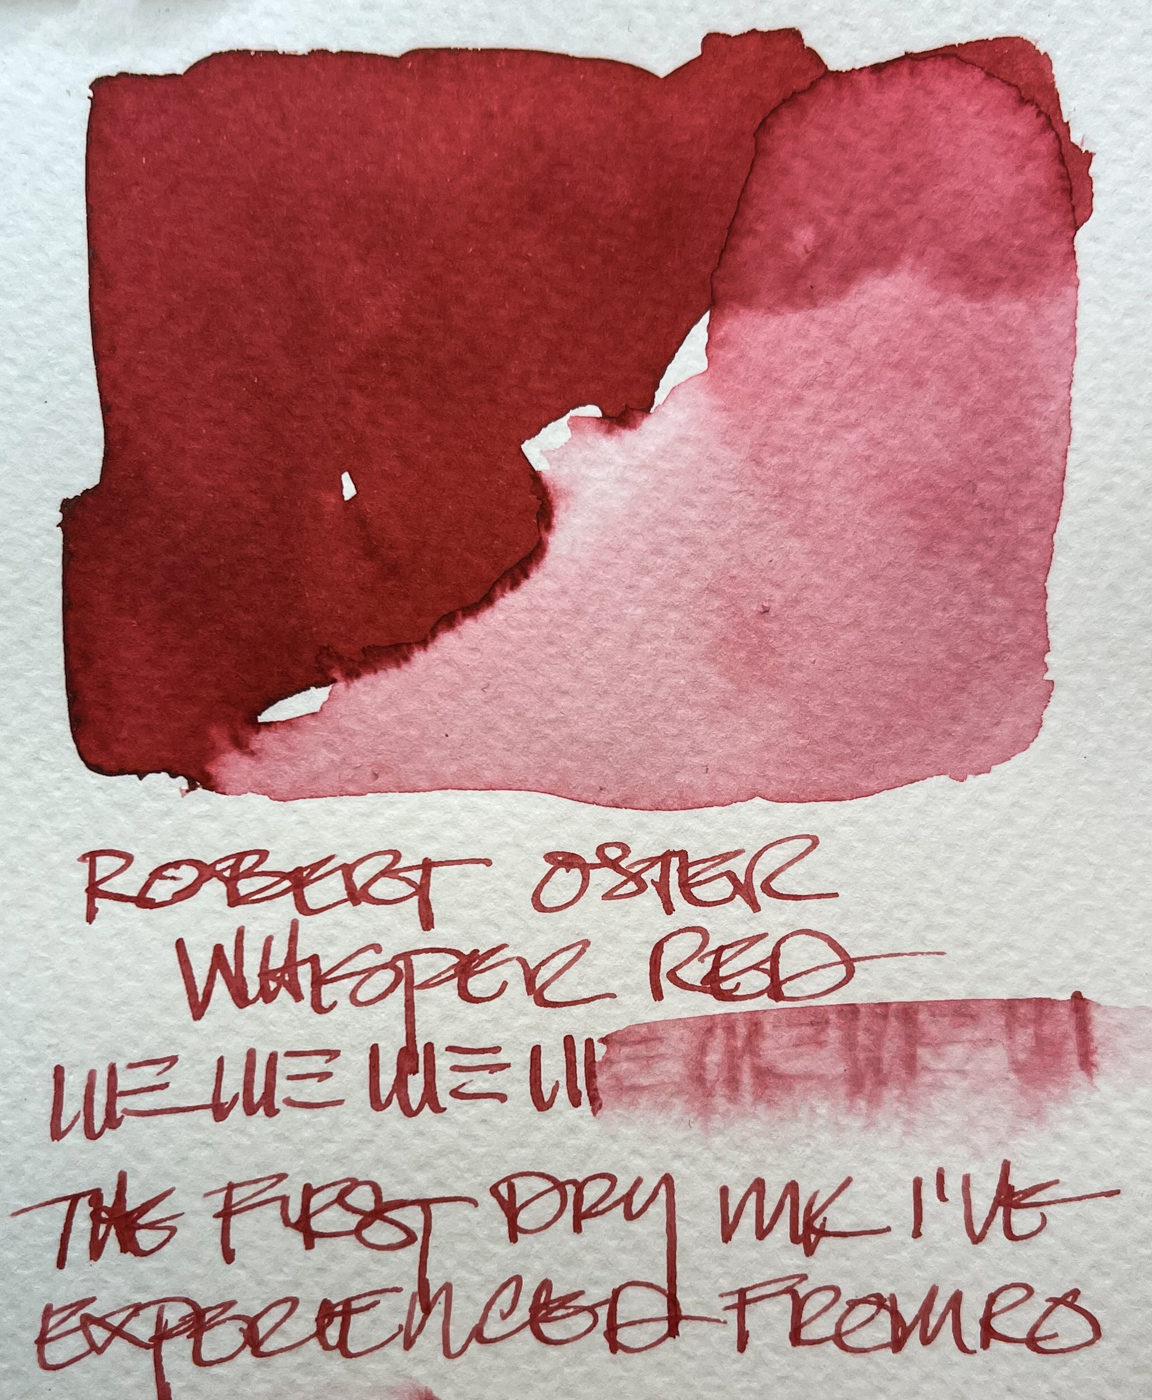 ROBERT OSTER
WHISPER RED
THE FIRST DRY INK I'VE
EXPERIENCED FROM RO